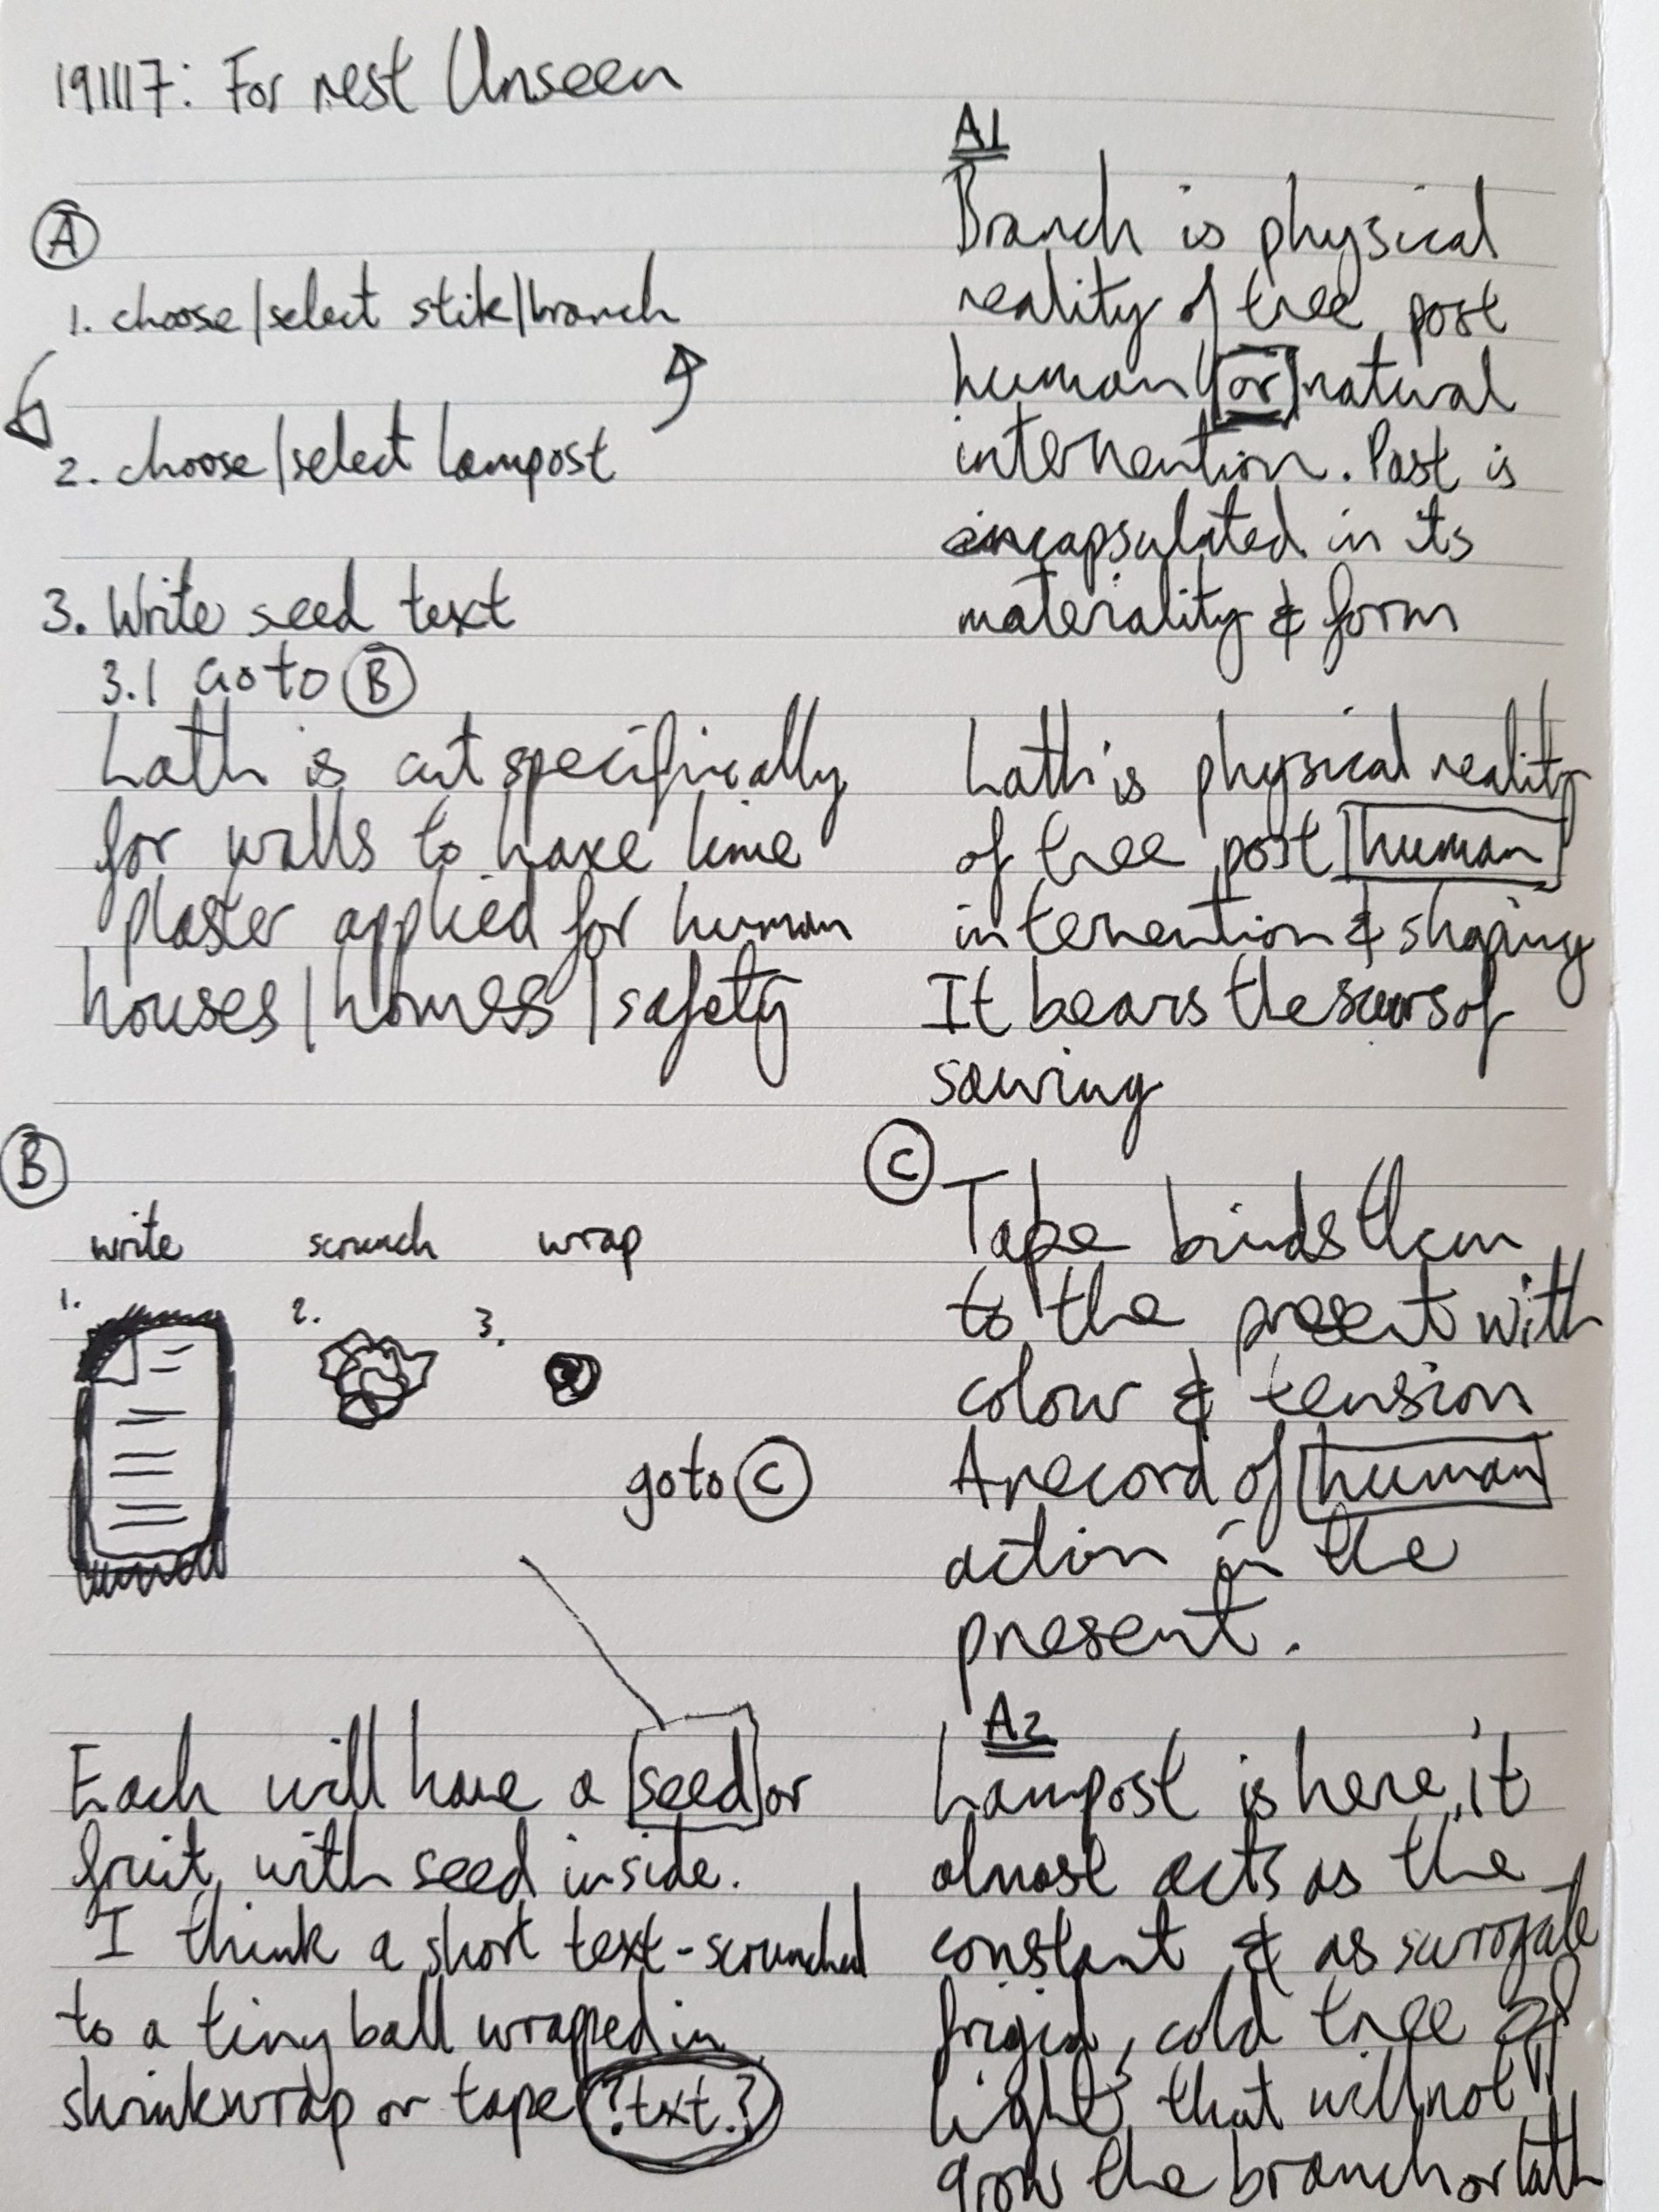 191117: For rest Unseen
A
1. choose/select stik/branch
2. choose/select Lampost
3. Write seed text
3.1 Go to B
Lath is cut specifically
for walls to have lime
plaster applied for human
houses/homes/safety
A1
Branch is physical
reality of tree post
human or natural
intervention. Past is
encapsulated in its
materiality & form
Lath is physical reality
of tree post human
intervention & shaping
It bears the scars of
sawing
B
write scrunch wrap
1. 2. 3.
goto C
Each will have a seed or
fruit, with seed inside.
I think a short text - scrunched
to a tiny ball wrapped in
shrinkwrap or tape ?txt.?
C
Tape binds them
to the present with
colour & tension
A record of human
action in the
present.
A2
Lampost is here, it
almost acts as the
constant & as surrogate
frigid, cold tree of
light, that will not
grow the branch or lath